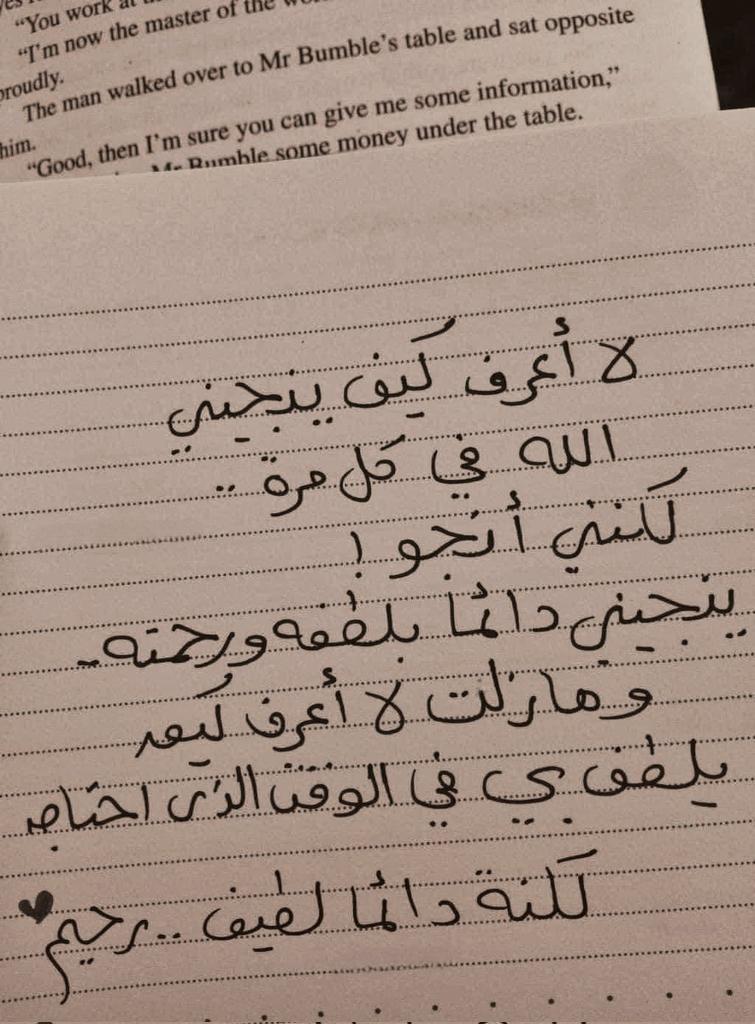 “You work at
“I’m now the master of the
proudly.
The man walked over to Mr Bumble’s table and sat opposite
him.
“Good, then I’m sure you can give me some information,”
Mr Bumble some money under the table.
لا أعرف كيف ينجيني
الله في كل مرة ..
لكنني أنجو !
ينجيني دائمًا بلطفه ورحمته ..
وما زلت لا أعرف كيف
يلطف بي في الوقت الذي احتاج
لكنة دائمًا لطيف .. رحيم